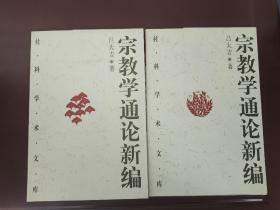 宗教学通论新编
吕大吉 著
社·科·学·术·文·库
宗教学通论新编
吕大吉 著
社·科·学·术·文·库